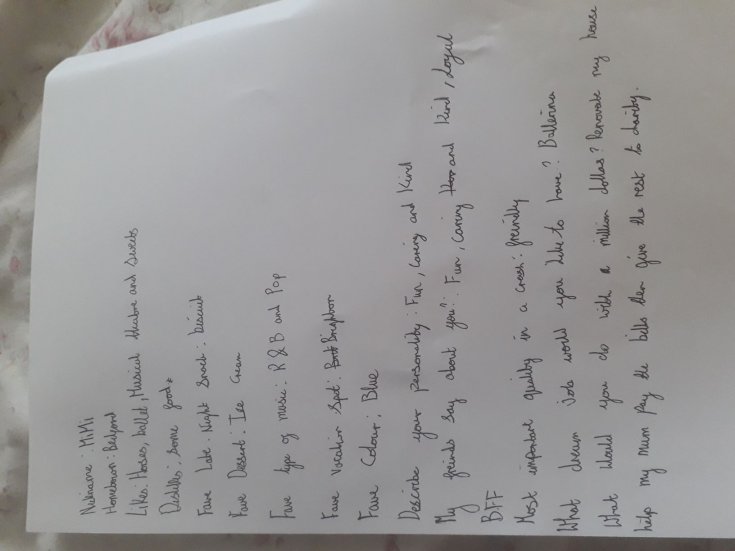 Nickname : MiMi
Hometown: Bedford
Likes: Horses, ballet, Musical theatre and Sweets
Dislikes; some foods
Fave Late Night Snack : biscuit
Fave Dessert: Ice Cream
Fave type of music: R & B and Pop
Fave Vacation Spot: Brighton
Fave Colour: Blue
Describe your personality: Fun, caring and Kind
My freinds say about you?: Fun, caring and kind, Loyal
BFF
Most important quality in a crush: freindly
What dream job would you like to have? Ballerina
What would you do with a million dollas? Renovate my house
help my mum pay the bills then give the rest to charity.